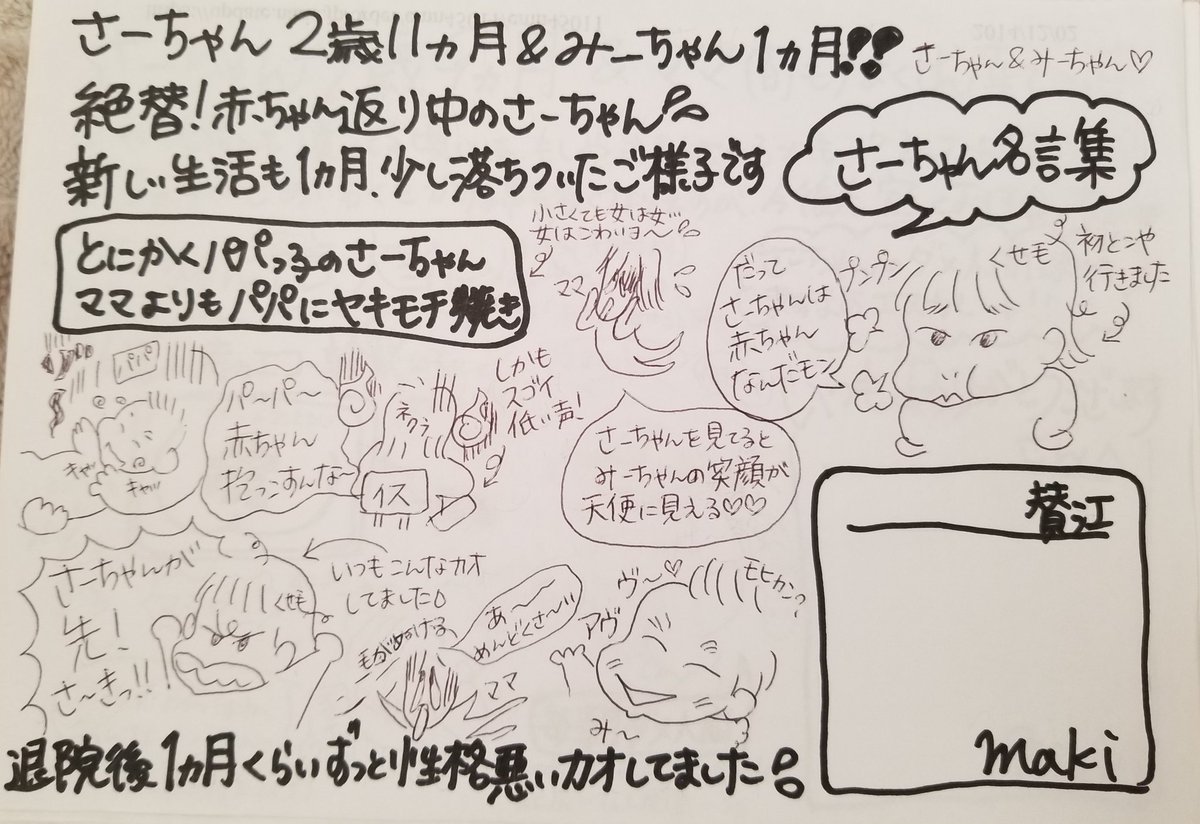 さーちゃん2歳11ヵ月&みーちゃん1ヵ月!!
さーちゃん&みーちゃん♡
絶賛!赤ちゃん返り中のさーちゃん
新しい生活も1ヵ月、少し落ちついたご様子です
さーちゃん名言集
とにかくパパっ子のさーちゃん
ママよりもパパにヤキモチ焼き
小さくても女は女…
女はこわいヨ〜
ママ
だって
さーちゃんは
赤ちゃん
なんだモン
プンプン
くせ毛
初とこや
行きました
パパ
キャッ
キャッ
パ〜パ〜
赤ちゃん
抱っこすんな〜
ネクラ
イス
しかも
スゴイ
低い声!
さーちゃんを見てると
みーちゃんの笑顔が
天使に見える♡♡
さーちゃんが
先!
さ〜きっ!!
くせ毛
いつもこんなカオ
してました
毛がぬける
あ〜〜
めんどくさ〜
ママ
ヴ〜♡
アヴ
モヒカン?
み〜
賛江
maki
退院後1ヵ月くらいずっと性格悪いカオしてました